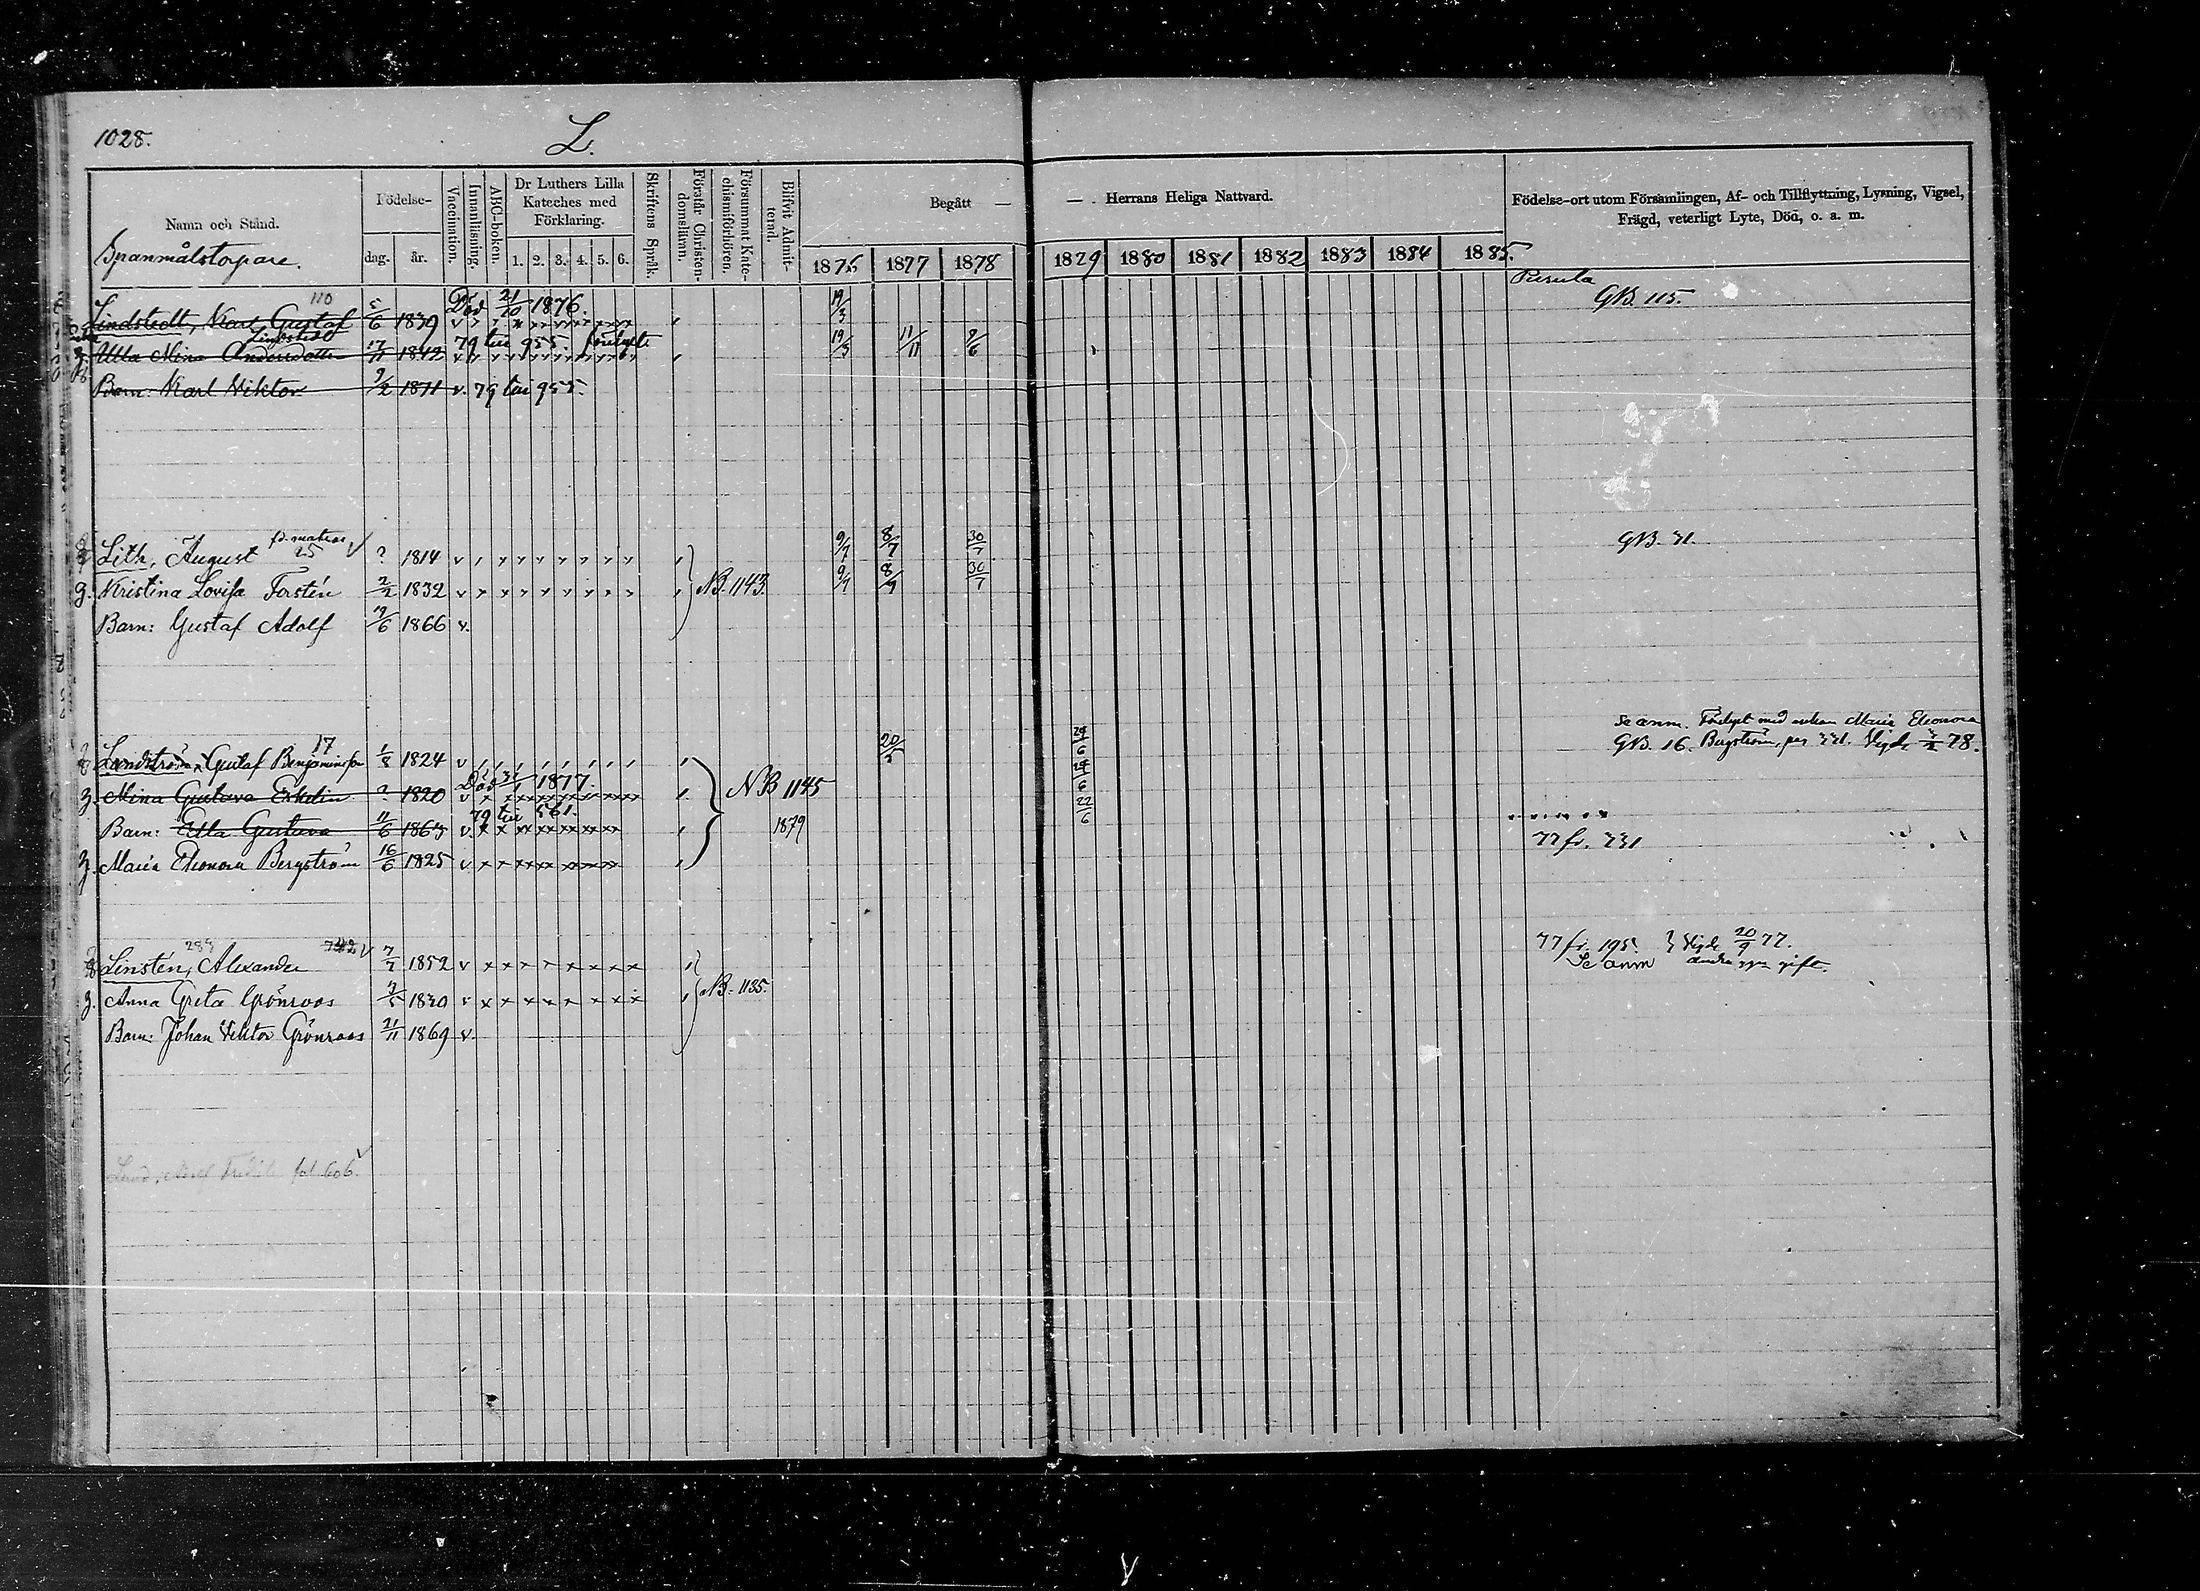 1028.
L.
Namn och Stånd.
Födelse-
dag. år.
Vaccination.
Innanläsning.
ABC-boken.
Dr Luthers Lilla
Kateches med
Förklaring.
1. 2. 3. 4. 5. 6.
Skriftens Språk.
Förstår Christen-
domsläran.
Försummat Kate-
chismiförhören.
Blifvit Admit-
terad.
Begått — — Herrans Heliga Nattvard.
1876 1877 1878 1879 1880 1881 1882 1883 1884 1885.
Födelse-ort utom Församlingen, Af- och Tillflyttning, Lysning, Vigsel,
Frägd, veterligt Lyte, Död, o. a. m.
Spanmålstorpare.
110 Död 21/10 1876. Pusula
Lindstedt, Karl Gustaf 5/6 1839 19/3 GB. 115.
Lindstedt 79 till 955.
Ulla Mina Andersdotter 17/11 1842 19/3 11/11 9/6
Barn: Karl Viktor 9/2 1871 v. 79 till 955.
Lith, August 25 ? 1814 9/7 8/7 30/7 GB. 31.
Kristina Lovisa Forstén 2/2 1832 NB. 1143. 9/7 8/7 30/7
Barn: Gustaf Adolf 19/6 1866 v.
Se anm. med enkan Maria Eleonora
17
Landström, Gustaf Benjaminsson 1/8 1824 20/5 29/6 GB. 16. Bergström, pag 331. Vigde 3/2 78.
Död 1877.
Mina Gustava Eskelin ? 1820 NB 1145 29/6
79 till 561.
Barn: Edla Gustava 11/6 1863 1879 22/6
Maria Eleonora Bergström 16/6 1825 77 fr. 331
289 742
Linstén, Alexander 7/7 1852 77 fr. 195. Vigde 20/9 77.
Se anm andra ggn gift.
Anna Greta Grönroos 3/5 1830 NB. 1135.
Barn: Johan Viktor Grönroos 21/11 1869 v.
Lund, fol 606.